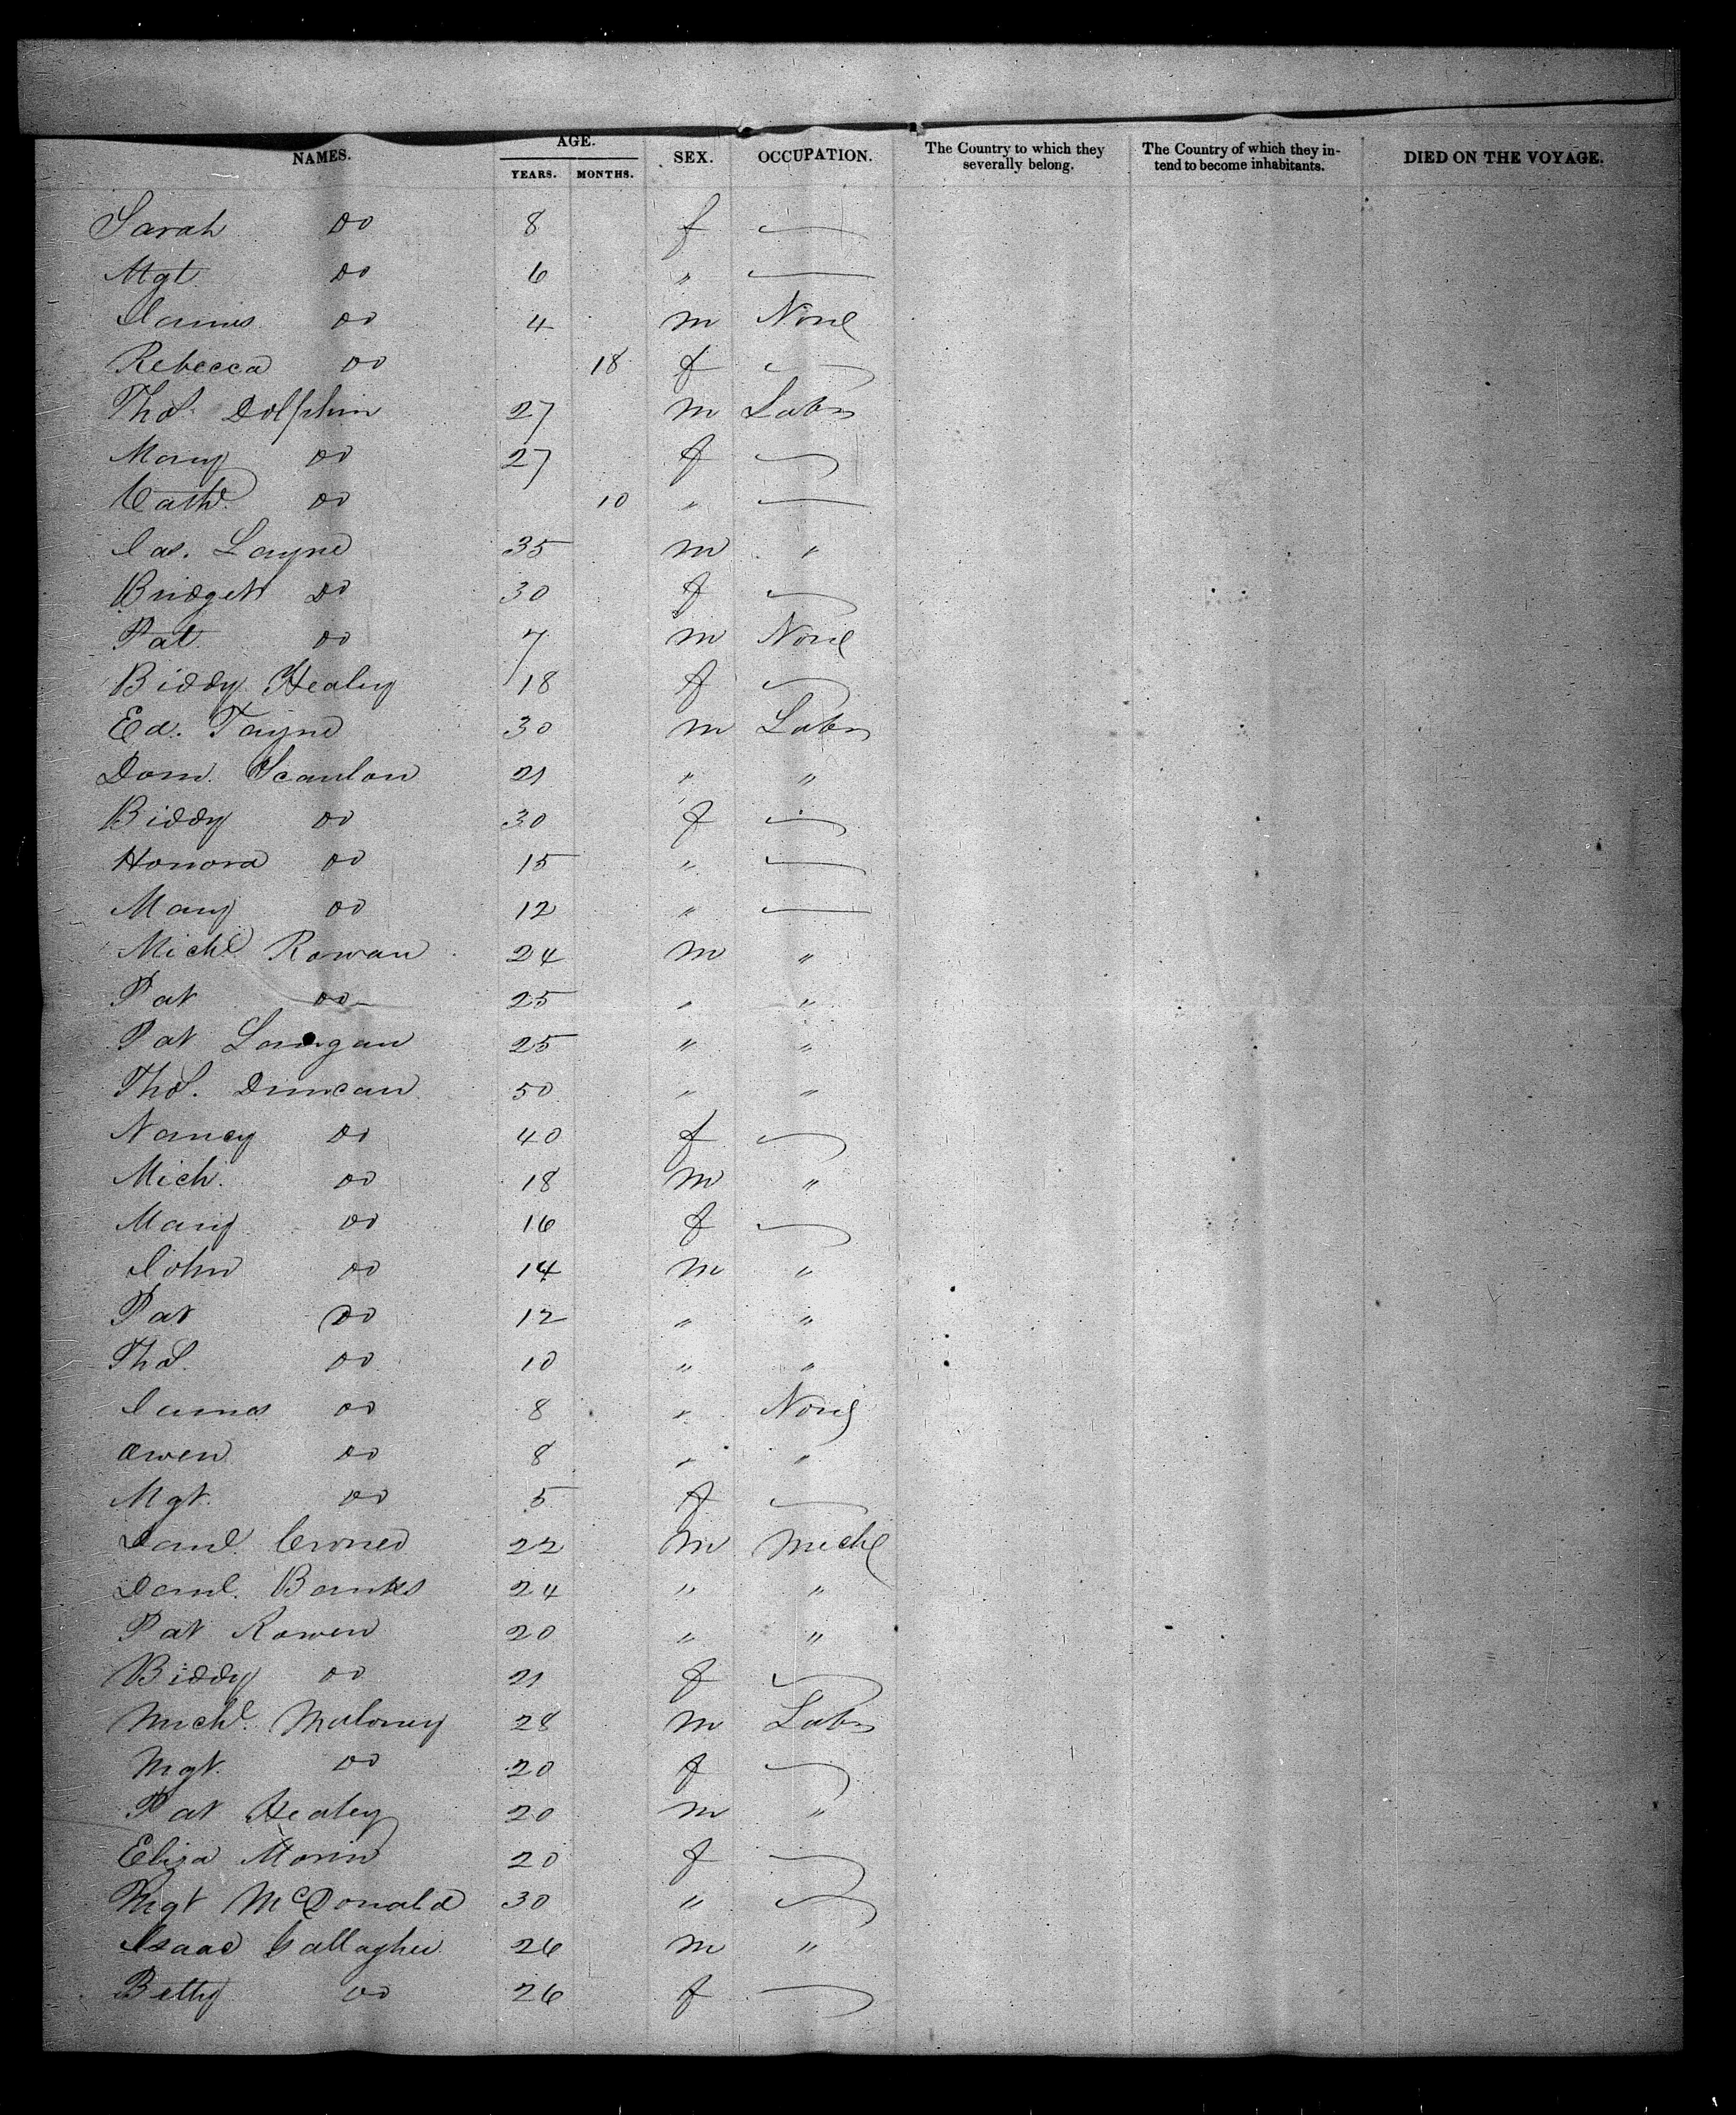 NAMES. AGE. YEARS. MONTHS. SEX. OCCUPATION. The Country to which they severally belong. The Country of which they intend to become inhabitants. DIED ON THE VOYAGE.
Sarah Do 8 f —
Mgt. Do 6 " —
James Do 4 m None
Rebecca Do 18 f —
Thos. Dolphin 27 m Labr
Mary Do 27 f —
Cathe. Do 10 " —
Jas. Layne 35 m "
Bridget Do 30 f —
Pat Do 7 m None
Biddy Healey 18 f —
Ed. Tayne 30 m Labr
Dom. Scanlon 21 " "
Biddy Do 30 f —
Honora Do 15 " —
Mary Do 12 " —
Michl Rowan 24 m "
Pat Do 25 " "
Pat 25 " "
Thos. Duncan 50 " "
Nancy Do 40 f —
Mich. Do 18 m "
Mary Do 16 f —
John Do 14 m "
Pat Do 12 " "
Thos. Do 10 " "
James Do 8 " None
Owen Do 8 " "
Mgt. Do 5 f —
Danl. 22 m Mechc
Danl. Banks 24 " "
Pat Rowen 20 " "
Biddy Do 21 f —
Michl. Maloney 28 m Labr
Mgt. Do 20 f —
Pat Healey 20 m "
Eliza Morin 20 f —
Mgt McDonald 30 " —
Isaac Gallagher 26 m "
Betty Do 26 f —